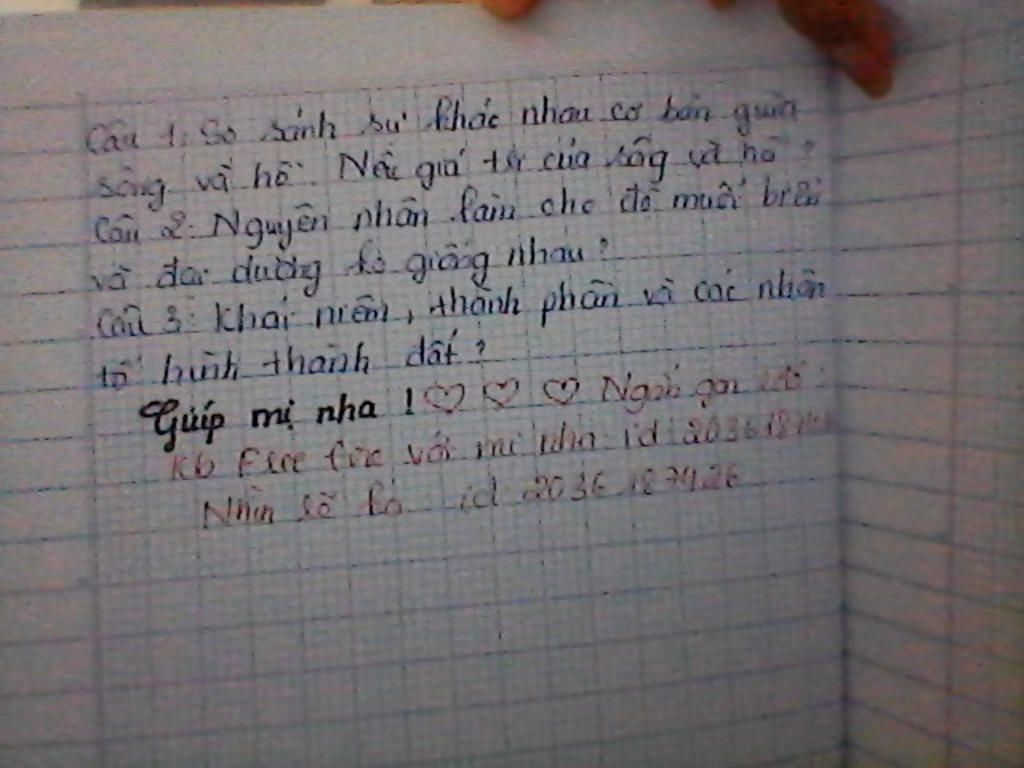 Câu 1: So sánh sự khác nhau cơ bản giữa
sông và hồ. Nêu giá trị của sông và hồ?
Câu 2: Nguyên nhân làm cho độ muối biển
và đại dương ko giống nhau?
Câu 3: Khái niệm, thành phần và các nhân
tố hình thành đất?
Giúp mị nha ! ♡ ♡ ♡ Ngắn gọn
Kb Free fire với mị nha id 203618
Nhìn rõ ko id 2036187426